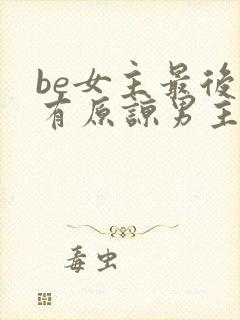 be女主最後
有原諒男主
毒虫